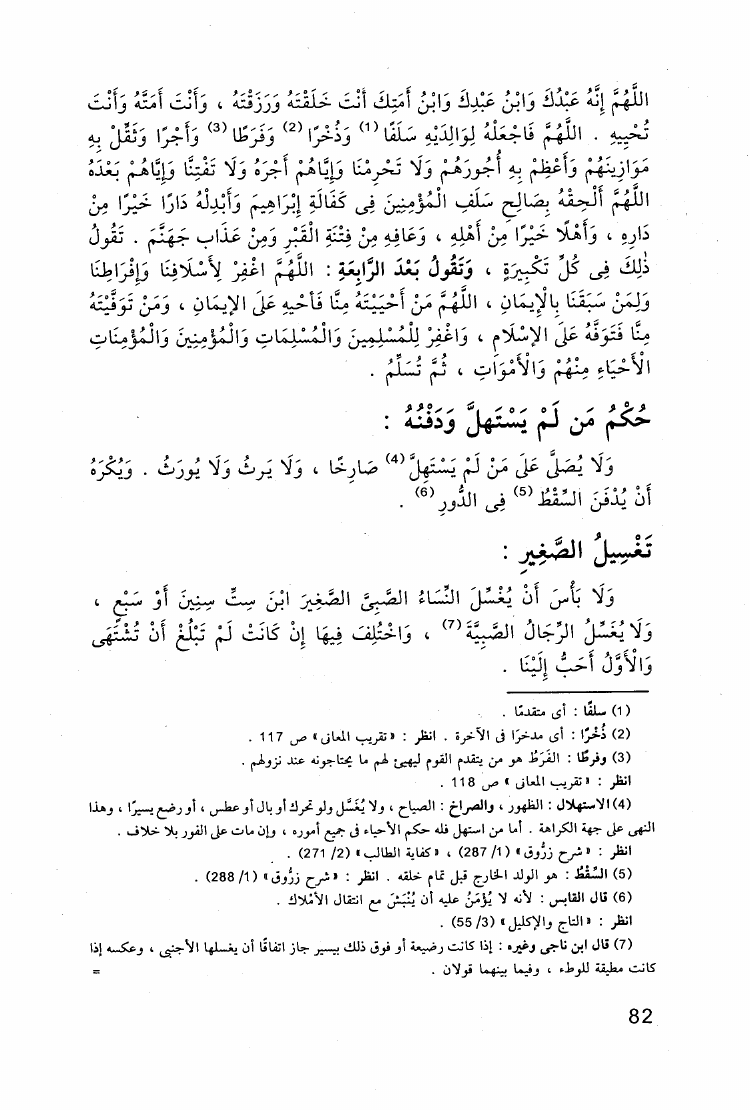 اللَّهُمَّ إِنَّهُ عَبْدُكَ وَابْنُ عَبْدِكَ وَابْنُ أَمَتِكَ أَنْتَ خَلَقْتَهُ وَرَزَقْتَهُ ، وَأَنْتَ أَمَتَّهُ وَأَنْتَ
تُحْيِيهِ . اللَّهُمَّ فَاجْعَلْهُ لِوَالِدَيْهِ سَلَفًا (1) وَذُخْرًا (2) وَفَرَطًا (3) وَأَجْرًا وَثَقِّلْ بِهِ
مَوَازِينَهُمْ وَأَعْظِمْ بِهِ أُجُورَهُمْ وَلَا تَحْرِمْنَا وَإِيَّاهُمْ أَجْرَهُ وَلَا تَفْتِنَّا وَإِيَّاهُمْ بَعْدَهُ
اللَّهُمَّ أَلْحِقْهُ بِصَالِحِ سَلَفِ الْمُؤْمِنِينَ فِى كَفَالَةِ إِبْرَاهِيمَ وَأَبْدِلْهُ دَارًا خَيْرًا مِنْ
دَارِهِ ، وَأَهْلًا خَيْرًا مِنْ أَهْلِهِ ، وَعَافِهِ مِنْ فِتْنَةِ الْقَبْرِ وَمِنْ عَذَابِ جَهَنَّمَ . تَقُولُ
ذٰلِكَ فِى كُلِّ تَكْبِيرَةٍ ، وَتَقُولُ بَعْدَ الرَّابِعَةِ : اللَّهُمَّ اغْفِرْ لِأَسْلَافِنَا وَإِفْرَاطِنَا
وَلِمَنْ سَبَقَنَا بِالْإِيمَانِ ، اللَّهُمَّ مَنْ أَحْيَيْتَهُ مِنَّا فَأَحْيِهِ عَلَى الإِيمَانِ ، وَمَنْ تَوَفَّيْتَهُ
مِنَّا فَتَوَفَّهُ عَلَى الإِسْلَامِ ، وَاغْفِرْ لِلْمُسْلِمِينَ وَالْمُسْلِمَاتِ وَالْمُؤْمِنِينَ وَالْمُؤْمِنَاتِ
الْأَحْيَاءِ مِنْهُمْ وَالْأَمْوَاتِ ، ثُمَّ تُسَلِّمُ .
حُكْمُ مَن لَمْ يَسْتَهِلَّ وَدَفْنُهُ :
وَلَا يُصَلَّى عَلَى مَنْ لَمْ يَسْتَهِلَّ (4) صَارِخًا ، وَلَا يَرِثُ وَلَا يُورَثُ . وَيُكْرَهُ
أَنْ يُدْفَنَ السِّقْطُ (5) فِى الدُّورِ (6) .
تَغْسِيلُ الصَّغِيرِ :
وَلَا بَأْسَ أَنْ يُغَسِّلَ النِّسَاءُ الصَّبِىَّ الصَّغِيرَ ابْنَ سِتِّ سِنِينَ أَوْ سَبْعٍ ،
وَلَا يُغَسِّلُ الرِّجَالُ الصَّبِيَّةَ (7) ، وَاخْتُلِفَ فِيهَا إِنْ كَانَتْ لَمْ تَبْلُغْ أَنْ تُشْتَهَى
وَالْأَوَّلُ أَحَبُّ إِلَيْنَا .
(1) سلفًا : أى متقدمًا .
(2) ذُخْرًا : أى مدخرًا فى الآخرة . انظر : « تقريب المعانى » ص 117 .
(3) وفرطًا : الفَرَطُ هو من يتقدم القوم ليهيئ لهم ما يحتاجونه عند نزولهم .
انظر : « تقريب المعانى » ص 118 .
(4) الاستهلال : الظهور ، والصراخ : الصياح ، ولا يُغَسَّل ولو تحرك أو بال أو عطس ، أو رضع يسيرًا ، وهذا
النهى على جهة الكراهة . أما من استهل فله حكم الأحياء فى جميع أموره ، وإن مات على الفور بلا خلاف .
انظر : « شرح زرُّوق » (1/ 287) ، « كفاية الطالب » (2/ 271) .
(5) السِّقْطُ : هو الولد الخارج قبل تمام خلقه . انظر : « شرح زرُّوق » (1/ 288) .
(6) قال القابسى : لأنه لا يُؤْمَنُ عليه أن يُنْبَشَ مع انتقال الأملاك .
انظر : « التاج والإكليل » (3/ 55) .
(7) قال ابن ناجى وغيره : إذا كانت رضيعة أو فوق ذلك بيسير جاز اتفاقًا أن يغسلها الأجنبى ، وعكسه إذا
كانت مطيقة للوطء ، وفيما بينهما قولان . =
82